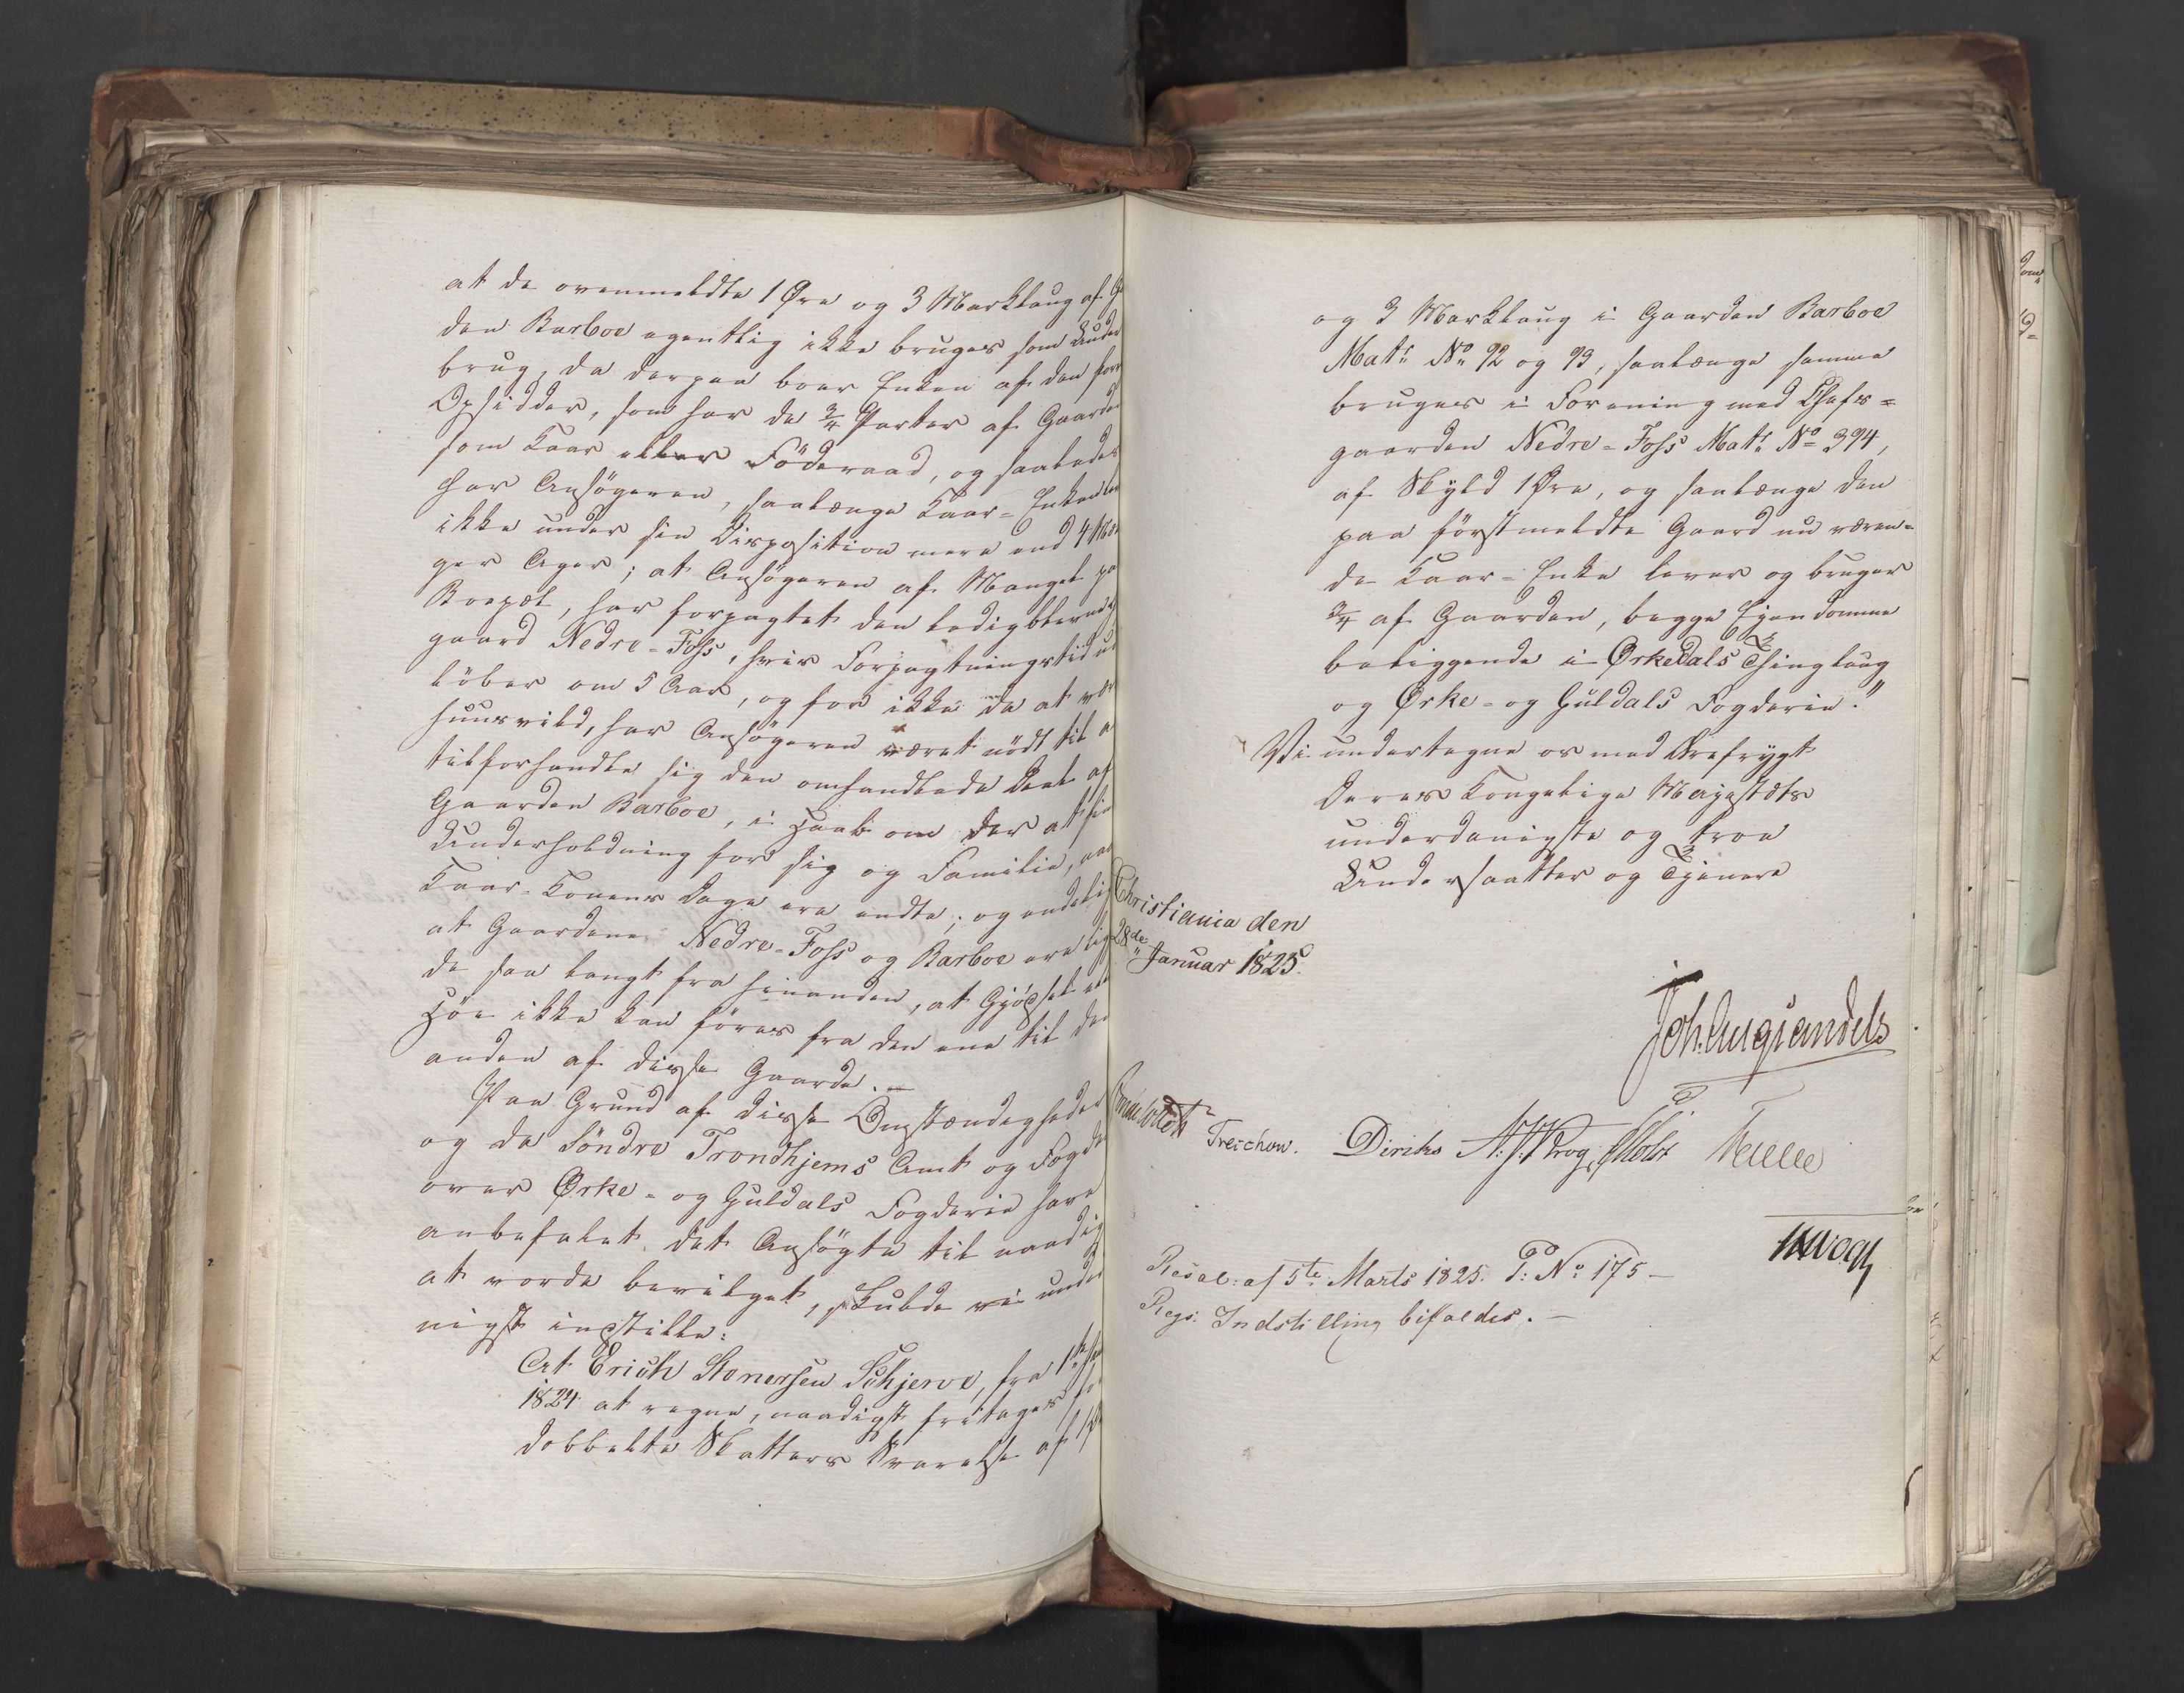 at de ovenmeldte 1 Øre og 3 Marklaug af
den Barboe egentlig ikke bruges som Under
brug, da derpaa boer Enken af den forr
Opsidder, som har de 3/4 Parter af Gaarden
som Kaar eller Föderaad, og saaledes
har Ansögeren, saalænge Kaar-Enken
ikke under sin Disposition mere end 4
ger Ager; at Ansögeren af Mangel paa
Boepæl, har forpagtet den
gaard Nedre-Foss, hvis Forpagtningstid ud
löber om 5 Aar, og for ikke da at være
huusvild, har Ansögeren været nödt til at
tilforhandle sig den omhandlede Deel af
Gaarden Barboe, i Haab om der at fin
Underholdning for sig og Familie, naar
Kaar-Konens Dage ere endte; og endelig
at Gaardene Nedre-Foss og Barboe ere lig
de saa langt fra hinanden, at Gjödsel
Höe ikke kan föres fra den ene til den
anden af disse Gaarde. —
Paa Grund af disse Omstændigheder
og da Söndre Trondhjems Amt og Fogden
over Ørke- og Guldals Fogderie have
anbefalet det Ansögte til naadigst
at vorde bevilget, skulde vi underda
nigst indstille:
At Erich Stenersen Schjerve, fra 1ste
1824 at regne, naadigst fritages for
dobbelte Skatters Svarelse af 1
og 3 Marklaug i Gaarden Barboe
Matr No 92 og 93, saalænge samme
bruges i Forening med Chefs-
gaarden Nedre-Foss Matr No 394,
af Skyld 1 Øre, og saalænge den
paa förstmeldte Gaard nu væren-
de Kaar-Enke lever og bruger
3/4 af Gaarden, begge Eiendomme
beliggende i Ørkedals Thinglaug
og Ørke- og Guldals Fogderie."
Vi undertegne os med Ærefrygt
Deres Kongelige Majestæts
underdanigste og troe
Undersaatter og Tjenere
Christiania den
28de Januar 1825.
Joh. Aug Sandels
Treschow. Diriks
Resol: af 5te Marts 1825. P: No 175 —
Regs: Indstilling bifaldes. —